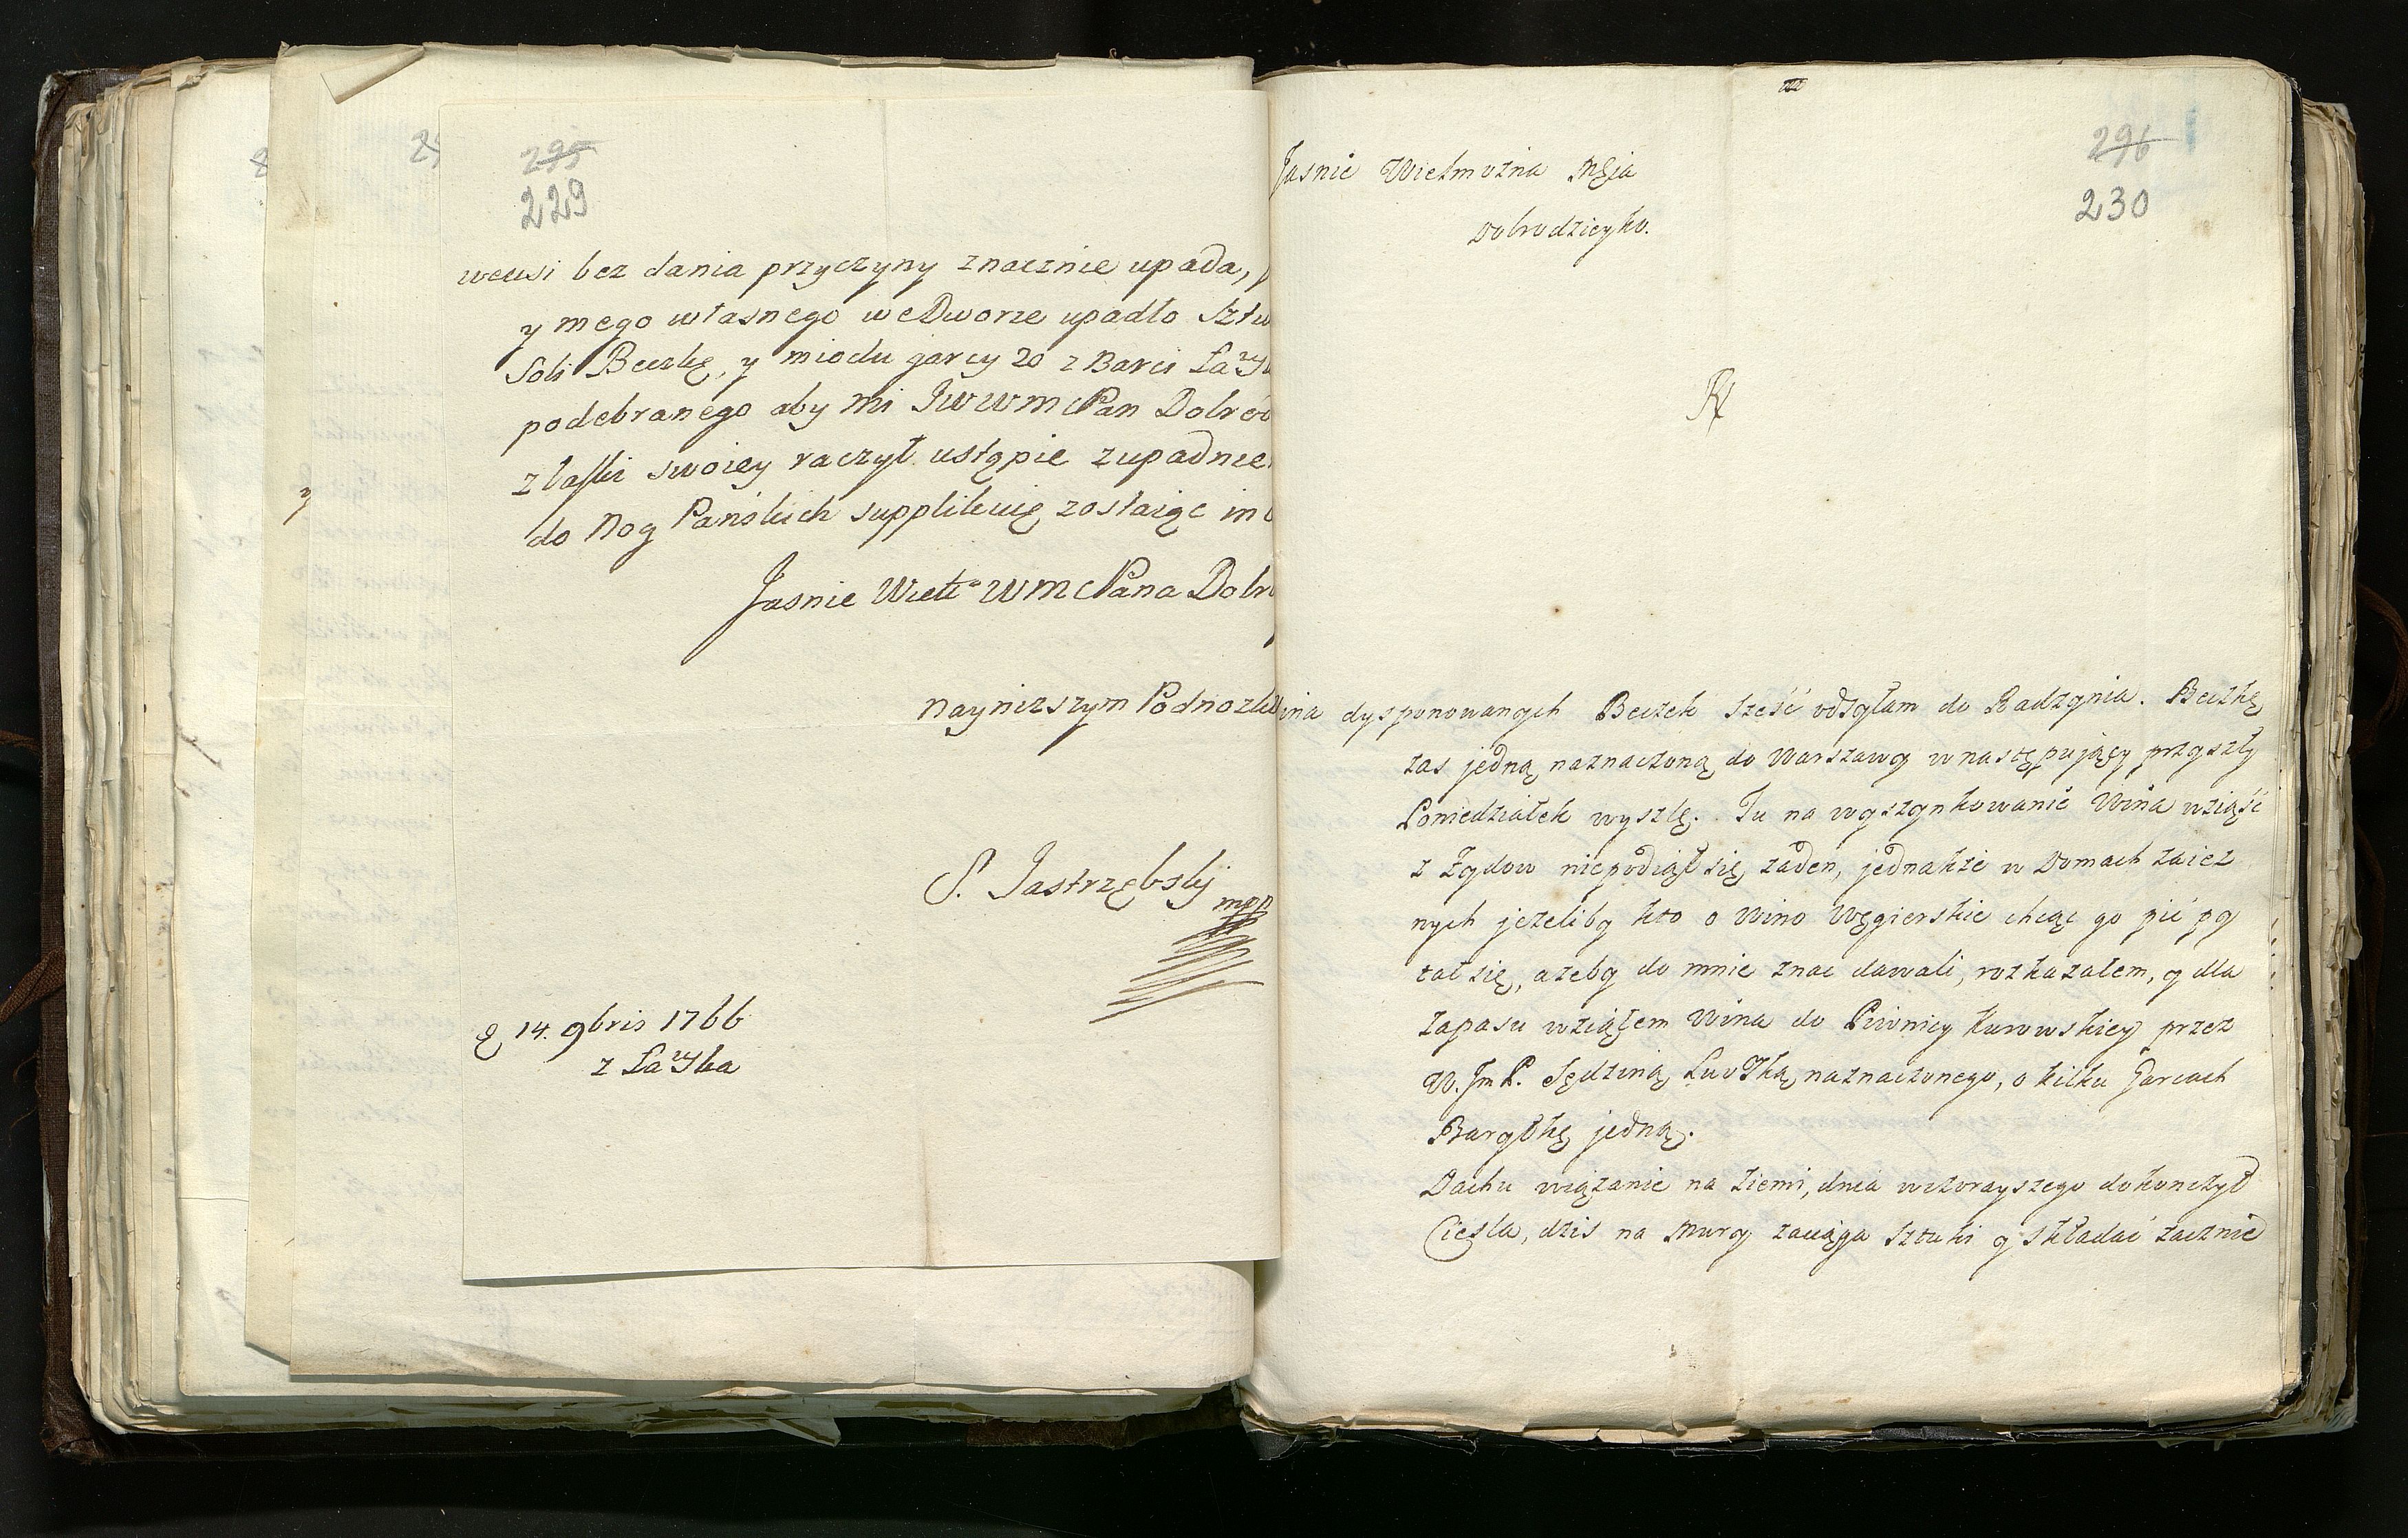 295
229
weusi bez dania przyczyny znacznie upada,
y mego własnego we Dworze upadło Sztu
Soli Beczkę, y miodu garcy 20 z Barci
podebranego aby mi JWWMCPan Dobro
z łaski swoiey raczył ustąpic zupadnie
do Nog Pańskich supplikuię zostaiąc in
Jasnie Wiel WMCPana Dobr
Naynizszym Podnozk
S. Jastrzębsky mpp
D 14. 9bris 1766
z
296
230
Jasnie Wielmozna Męja
Dobrodzieyko.
ina dysponowanych Beczek sześć odsyłam do Radzynia. Beczkę
zas jedną naznaczoną do Warszawy w następujący przyszły
Poniedziałek wyszlę. Tu na wyszynkowanie Wina wziąść
z Zydow niepodiął się zaden, jednakze w Domach zaiez
nych jezeliby kto o Wino Węgierskie chcąc go pić py
tał się, azeby do mnie znac dawali, rozkazałem, y dla
zapasu wziąłem Wina do Piwnicy Kurowskiey przez
W. Jm P. Sędziną naznaczonego, o kilku Garcach
Baryłkę jedną.
Dachu wiązanie na ziemi, dnia wczorayszego dokonczył
Ciesla, dzis na Mury zaciąga Sztuki y składać zacznie